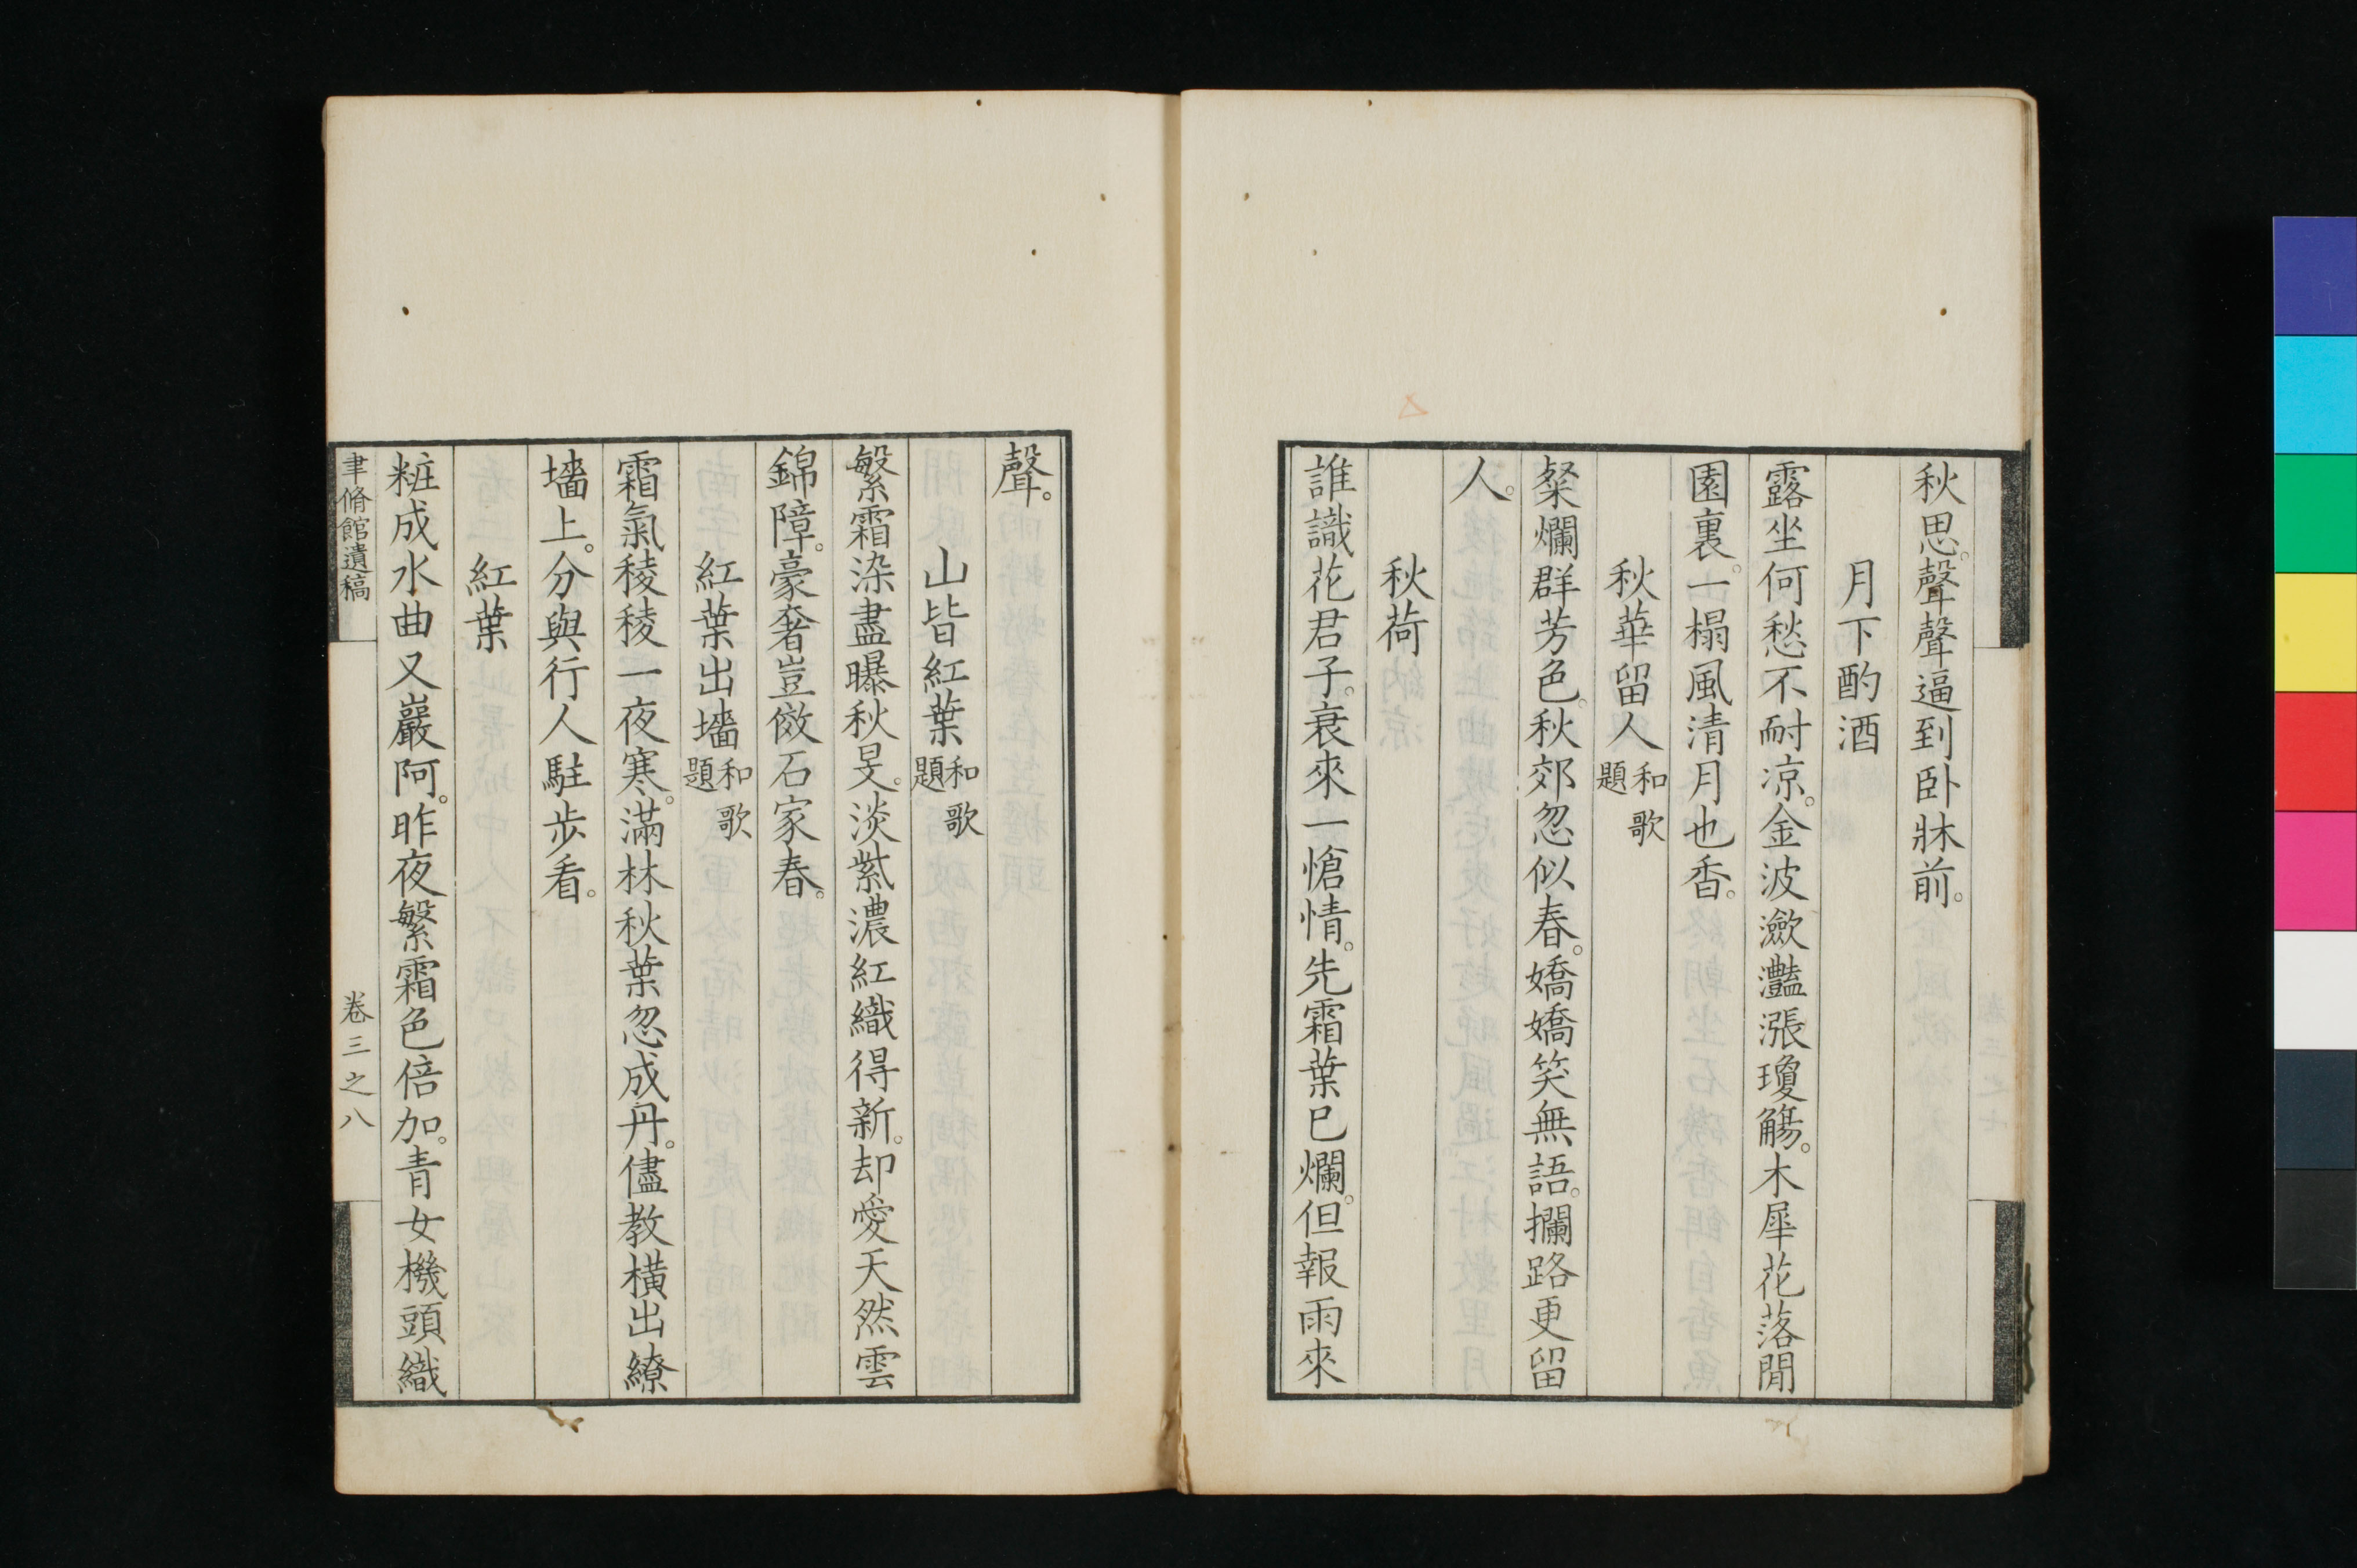 秋思。聲聲逼到卧牀前。
月下酌酒
露坐何愁不耐凉。金波瀲灩漲瓊觴。木犀花落閒
園裏。一榻風清月也香。
秋華留人和歌題
粲爛群芳色。秋郊忽似春。嬌嬌笑無語。攔路更留
人。
秋荷
誰識花君子。衰來一愴情。先霜葉已爛。但報雨來
聲。
山皆紅葉和歌題
繁霜染盡曝秋旻。淡紫濃紅織得新。却愛天然雲
錦障。豪奢豈傚石家春。
紅葉出墻和歌題
霜氣稜稜一夜寒。滿林秋葉忽成丹。儘教橫出繚
墻上。分與行人駐步看。
紅葉
粧成水曲又巖阿。昨夜繁霜色倍加。青女機頭織
聿脩館遺稿
卷三之八